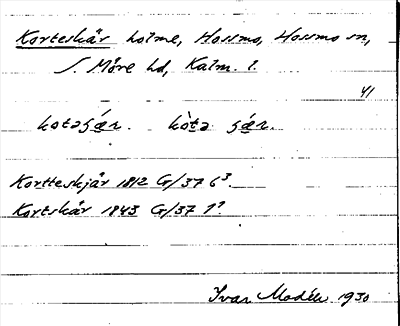 Korteskär holme, Hossmo, Hossmo sn,
S. Möre hd, Kalm. l.
41
Kortteskjär 1812 G/37 6³.
Kortskär 1843 G/37 1².
Ivar Modéer 1930